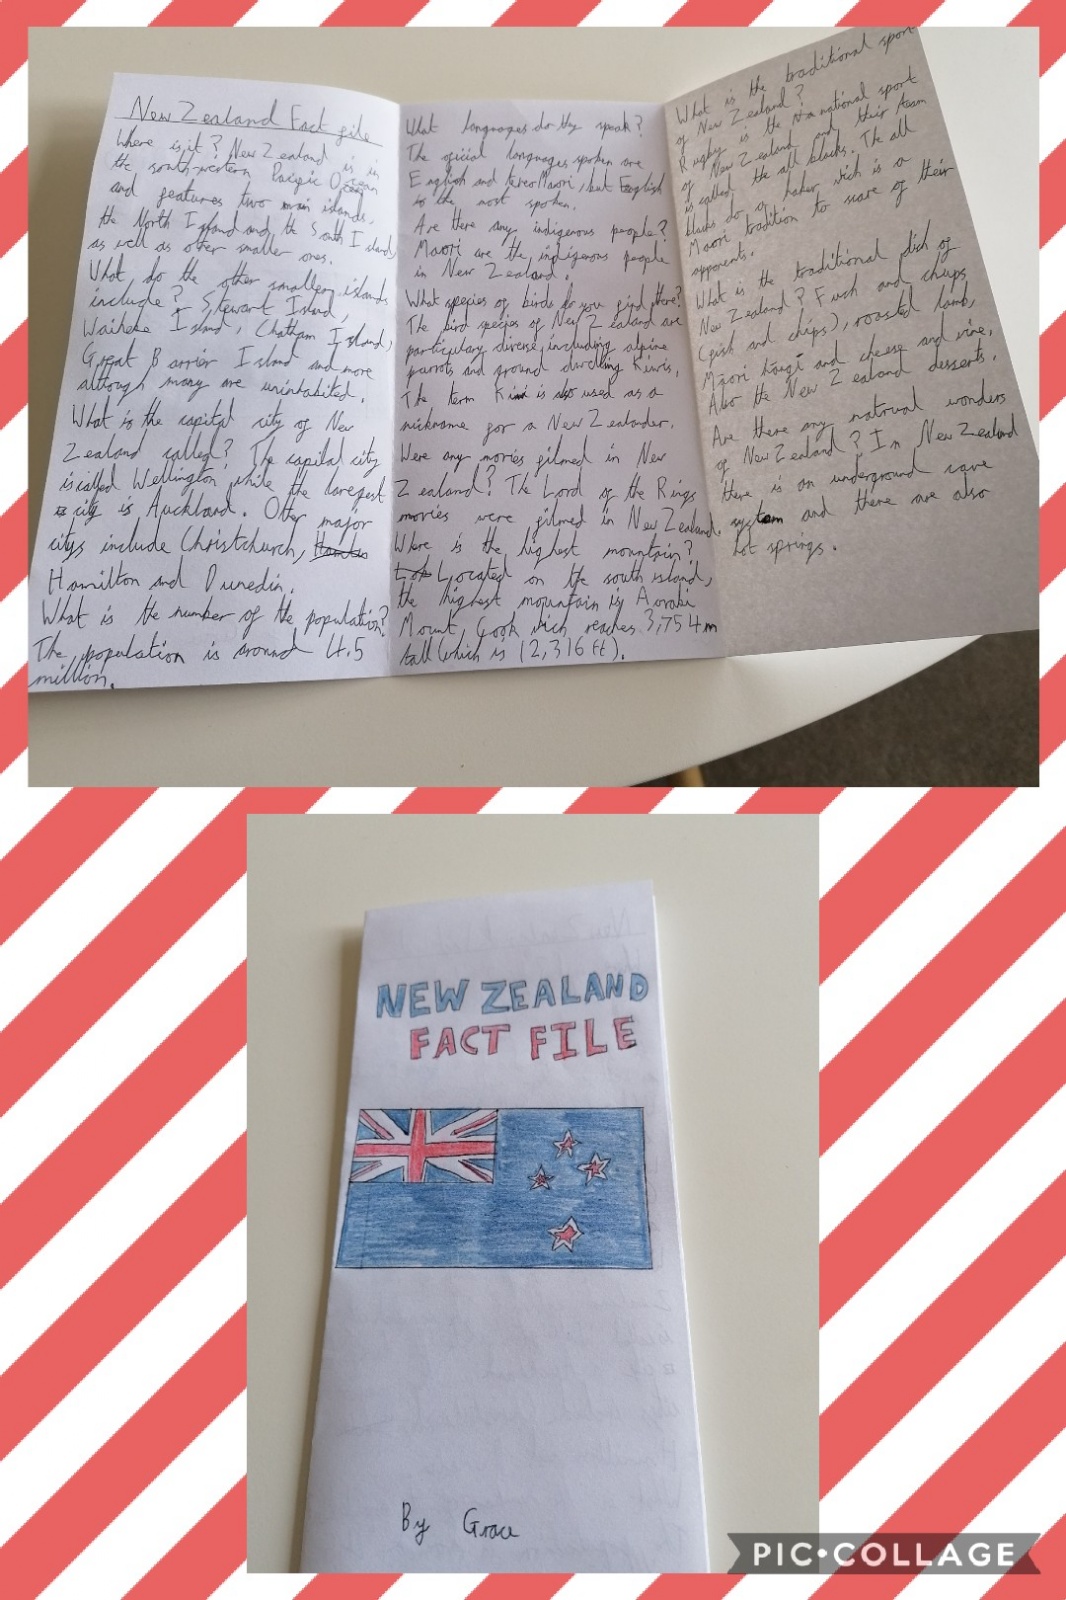 New Zealand Fact file
Where is it? New Zealand is in
the south-western Pacific Ocean
and features two main islands,
the North Island and the South Island,
as well as other smaller ones.
What do the other smaller islands
include? Stewart Island,
Waiheke Island, Chatham Island,
Great Barrier Island and more
although many are uninhabited.
What is the capital city of New
Zealand called? The capital city
is called Wellington while the largest
city is Auckland. Other major
citys include Christchurch,
Hamilton and Dunedin.
What is the number of the population?
The population is around 4.5
million.
What languages do they speak?
The official languages spoken are
English and tereo Maori, but English
is the most spoken.
Are there any indigenous people?
Maori are the indigenous people
in New Zealand.
What species of birds do you find there?
The bird species of New Zealand are
particulary diverse, including alpine
parrots and ground dwelling Kiwis.
The term Kiwi is also used as a
nickname for a New Zealander.
Were any movies filmed in New
Zealand? The Lord of the Rings
movies were filmed in New Zealand.
Where is the highest mountain?
Located on the south island,
the highest mountain is Aoraki
Mount Cook wich reaches 3,754m
tall (which is 12,316 ft).
What is the traditional sport
of New Zealand?
Rugby is the national sport
of New Zealand and their team
is called the all blacks. The all
blacks do a haker wich is a
Maori tradition to scare of their
opponents.
What is the traditional dish of
New Zealand? Fush and chups
(fish and chips), roasted lamb,
Māori hāngī and cheese and wine.
Also the New Zealand desserts.
Are there any natrual wonders
of New Zealand? In New Zealand
there is an underground cave
system and there are also
hot springs.
NEW ZEALAND
FACT FILE
By Grace
PIC•COLLAGE